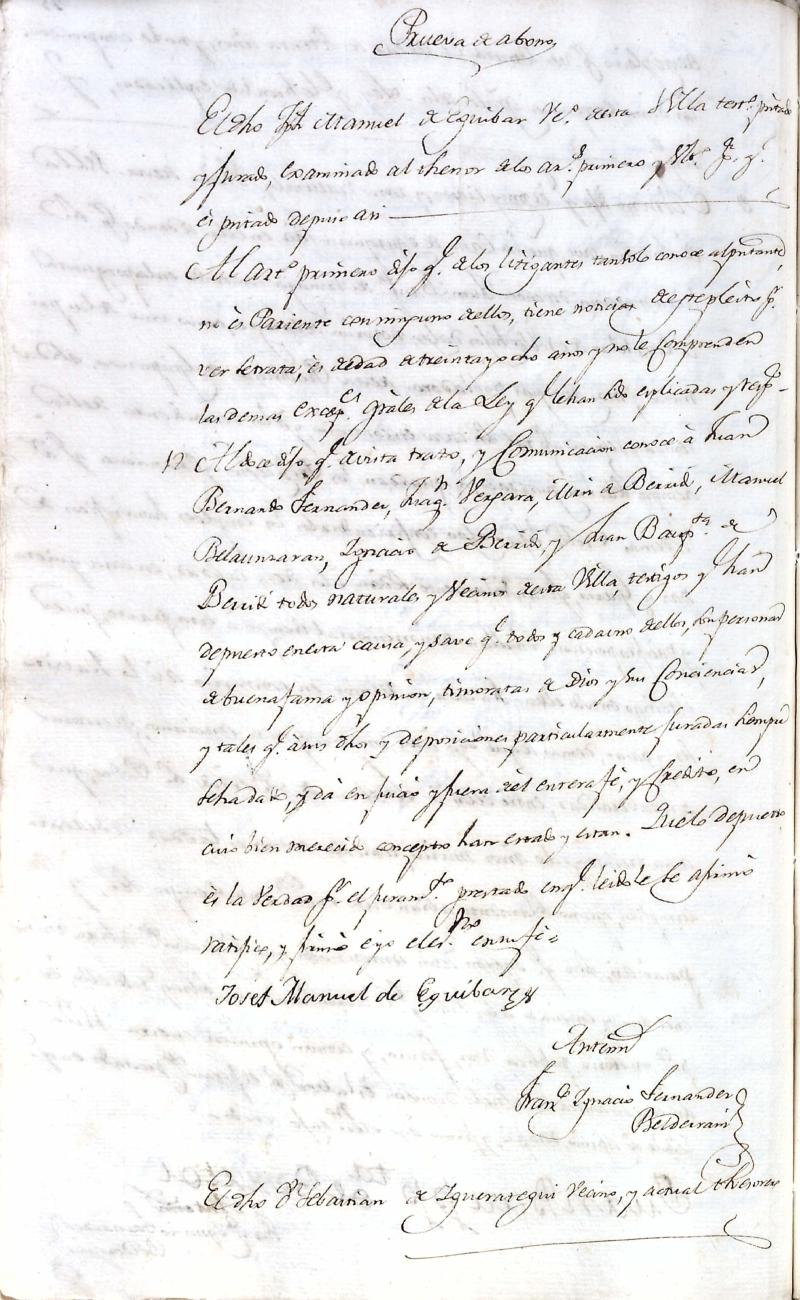 Prueva de abono
El dho Jph Manuel de Eguibar Vº. de esta Villa testº. prntado
y Jurado, examinado al thenor de los ars. primero y
es prntado depuso asi
Al artº primero dijo q. de los litigantes tan solo conoce al prntante,
no ès Pariente con ninguno dellos, tiene noticias de este pleito pr.
ver se trata, es de edad de treinta y ocho años y no le Comprenden
las demas excepes. grâles de la Ley q le han sido esplicadas y resp.
12 Al doce dijo q. de vista trato, y Comunicacion conoce à Juan
Bernardo Fernandez, Joaqn. Vergara, Mrn de Berridi, Manuel
Belaunzaran, Ignacio de Berridi, y Juan Baupta. de
Berridi todos naturales y Vecinos de esta Villa, testigos q han
depuesto en esta causa, y save q. todos y cada uno dellos, son personas
de buena fama y opinion, timoratas de Dios y sus Conciencias,
y tales q. à sus dhos y deposiciones particularmente Juradas siempre
se ha dado, y dà en juicio y fuera del entera fè, y Credito, en
cuio bien merecido concepto han estado y estan. Que lo depuesto
ès la Verdad pr. el juramto. prestado en q. leidole se afirmò
ratificò, y firmò e yo el esno. en su fè=
Josef Manuel de Eguibar
Antemi
Franco Ignacio Fernandez
Beldarrain
El dho Dn Sebastian de Iguerategui Vecino, y actual thesorero